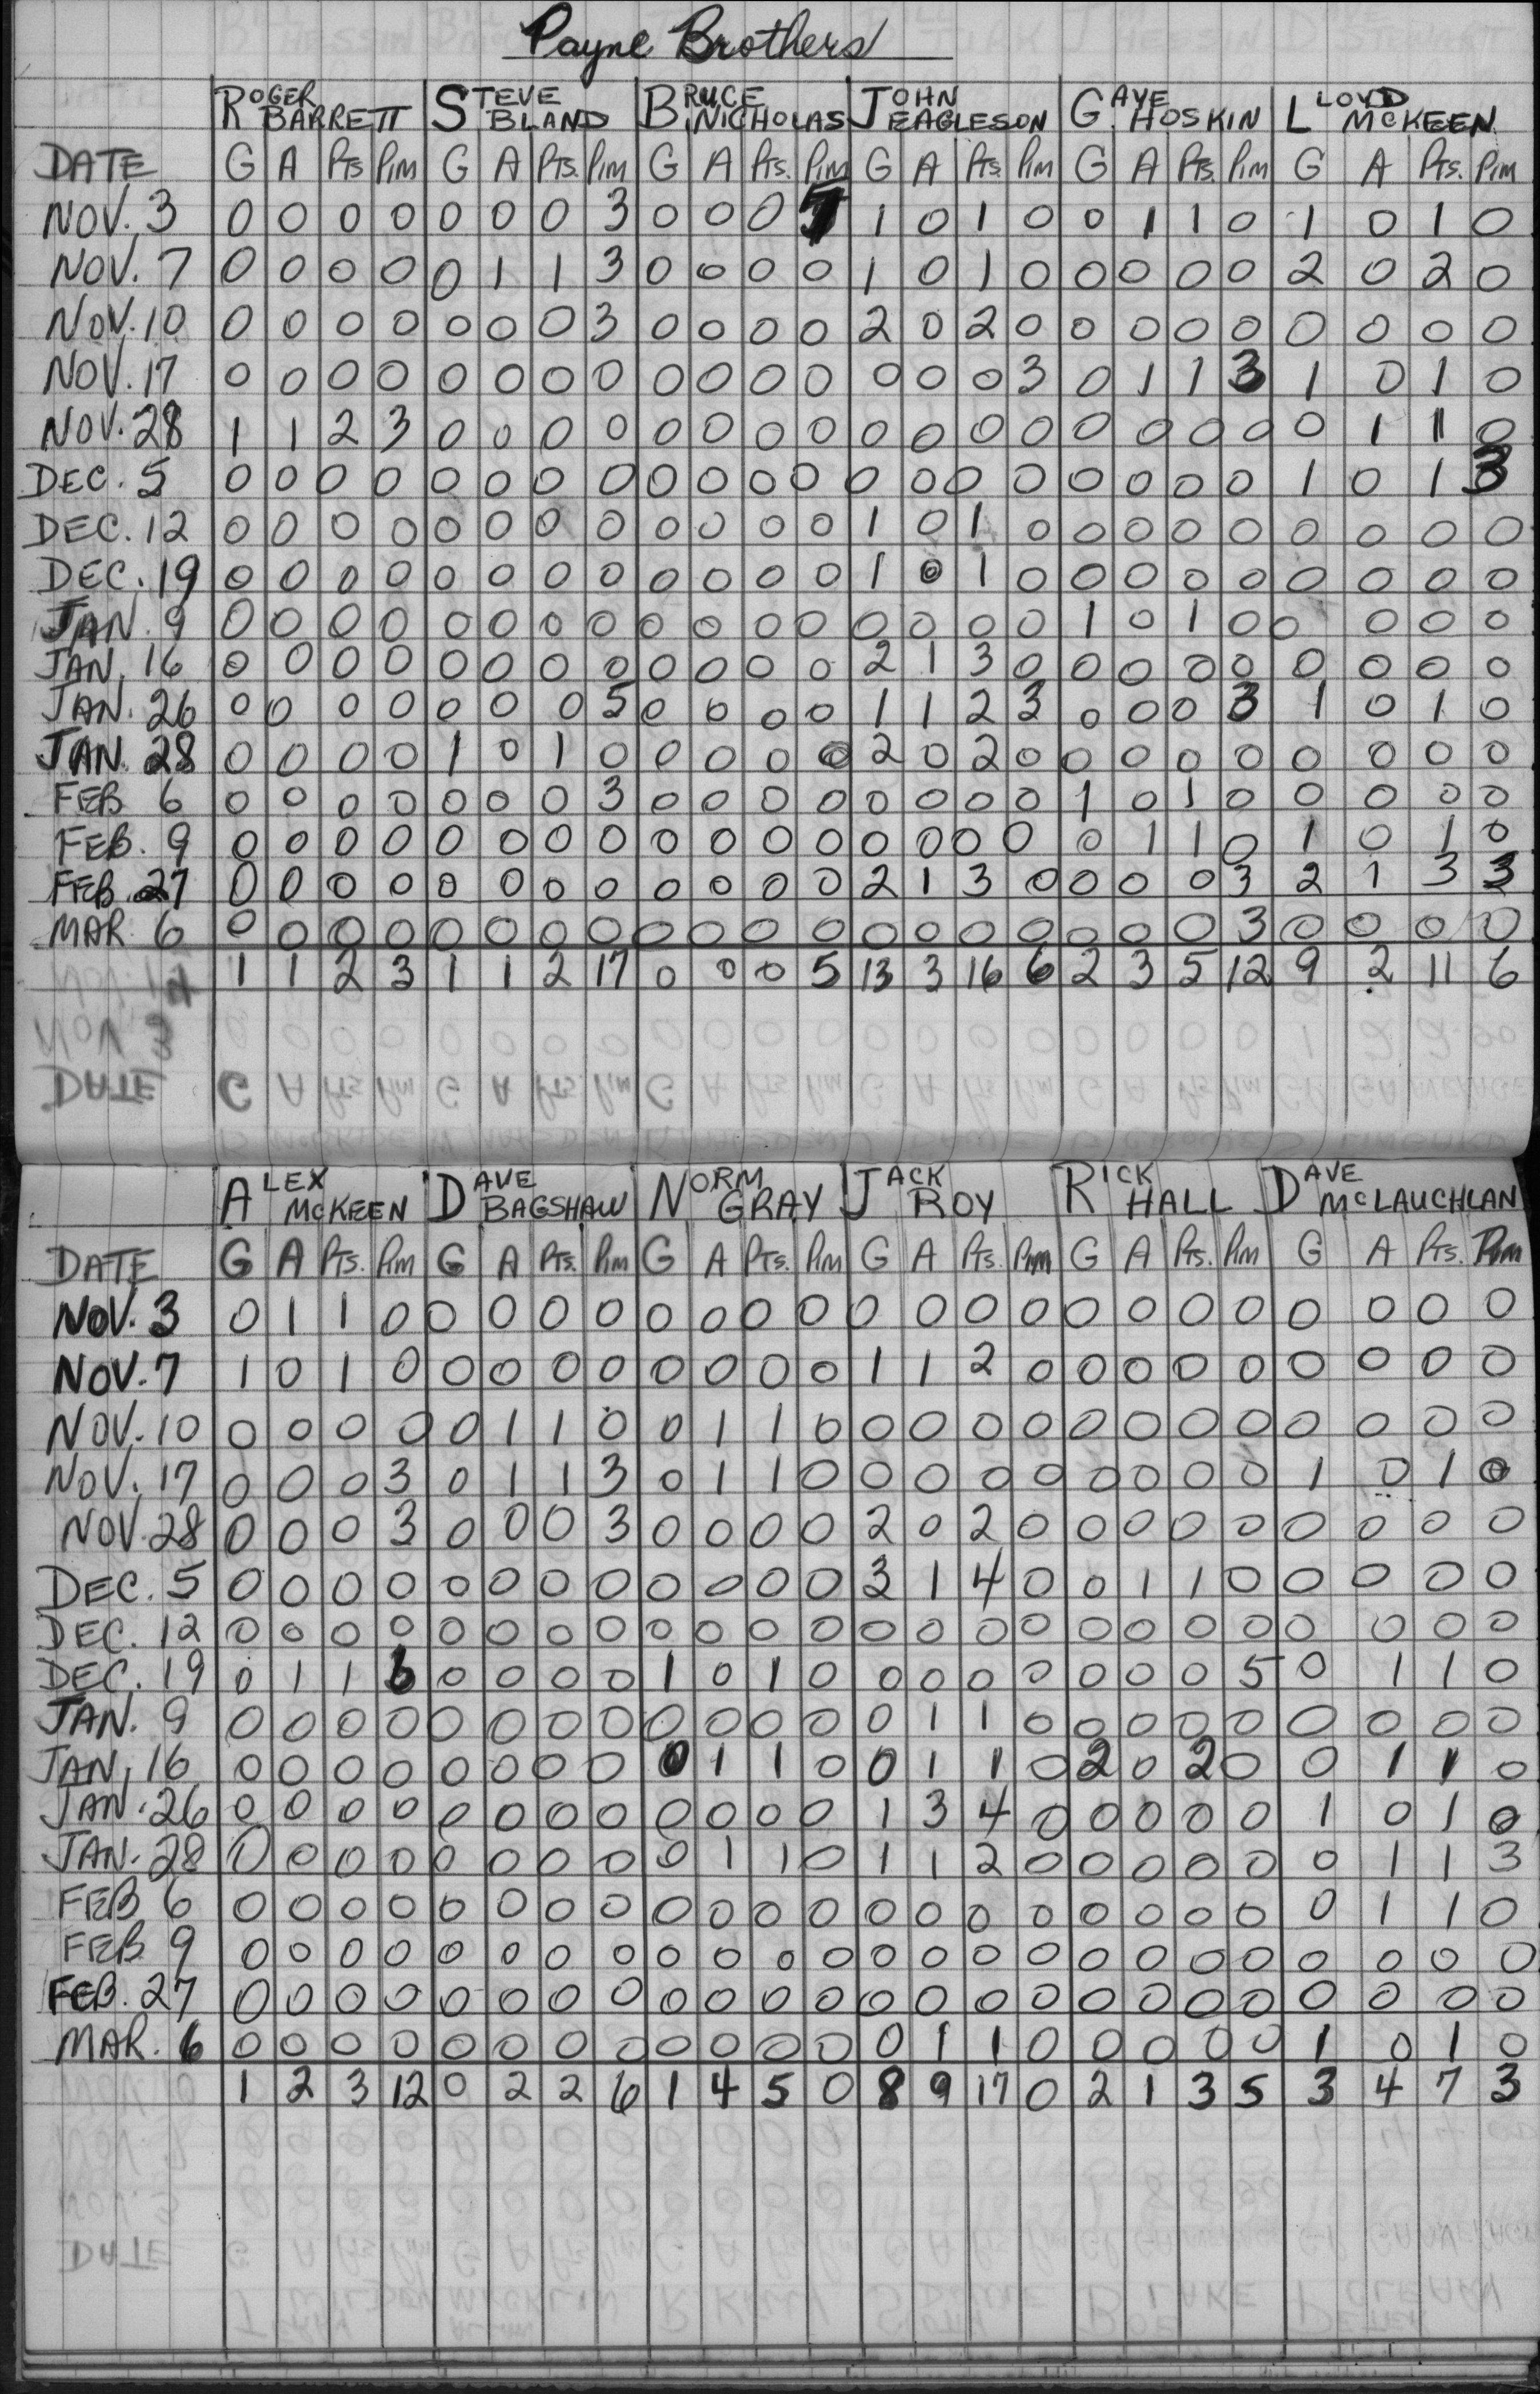 Payne Brothers
ROGER BARRETT STEVE BLAND BRUCE NICHOLAS JOHN EAGLESON GAYE HOSKIN LLOYD McKEEN
DATE G A Pts Pim G A Pts. Pim G A Pts. Pim G A Pts. Pim G A Pts. Pim G A Pts. Pim
NOV. 3 0 0 0 0 0 0 0 3 0 0 0 5 1 0 1 0 0 1 1 0 1 0 1 0
NOV. 7 0 0 0 0 0 1 1 3 0 0 0 0 1 0 1 0 0 0 0 0 2 0 2 0
NOV. 10 0 0 0 0 0 0 0 3 0 0 0 0 2 0 2 0 0 0 0 0 0 0 0 0
NOV. 17 0 0 0 0 0 0 0 0 0 0 0 0 0 0 0 3 0 1 1 3 1 0 1 0
NOV. 28 1 1 2 3 0 0 0 0 0 0 0 0 0 0 0 0 0 0 0 0 0 1 1 0
DEC. 5 0 0 0 0 0 0 0 0 0 0 0 0 0 0 0 0 0 0 0 0 1 0 1 3
DEC. 12 0 0 0 0 0 0 0 0 0 0 0 0 1 0 1 0 0 0 0 0 0 0 0 0
DEC. 19 0 0 0 0 0 0 0 0 0 0 0 0 1 0 1 0 0 0 0 0 0 0 0 0
JAN. 9 0 0 0 0 0 0 0 0 0 0 0 0 0 0 0 0 1 0 1 0 0 0 0 0
JAN. 16 0 0 0 0 0 0 0 0 0 0 0 0 2 1 3 0 0 0 0 0 0 0 0 0
JAN. 26 0 0 0 0 0 0 0 5 0 0 0 0 1 1 2 3 0 0 0 3 1 0 1 0
JAN. 28 0 0 0 0 1 0 1 0 0 0 0 0 2 0 2 0 0 0 0 0 0 0 0 0
FEB 6 0 0 0 0 0 0 0 3 0 0 0 0 0 0 0 0 1 0 1 0 0 0 0 0
FEB. 9 0 0 0 0 0 0 0 0 0 0 0 0 0 0 0 0 0 1 1 0 1 0 1 0
FEB. 27 0 0 0 0 0 0 0 0 0 0 0 0 2 1 3 0 0 0 0 3 2 1 3 3
MAR. 6 0 0 0 0 0 0 0 0 0 0 0 0 0 0 0 0 0 0 0 3 0 0 0 0
1 1 2 3 1 1 2 17 0 0 0 5 13 3 16 6 2 3 5 12 9 2 11 6
ALEX McKEEN DAVE BAGSHAW NORM GRAY JACK ROY RICK HALL DAVE McLAUCHLAN
DATE G A Pts. Pim G A Pts. Pim G A Pts. Pim G A Pts. Pim G A Pts. Pim G A Pts. Pim
NOV. 3 0 1 1 0 0 0 0 0 0 0 0 0 0 0 0 0 0 0 0 0 0 0 0 0
NOV. 7 1 0 1 0 0 0 0 0 0 0 0 0 1 1 2 0 0 0 0 0 0 0 0 0
NOV. 10 0 0 0 0 0 1 1 0 0 1 1 0 0 0 0 0 0 0 0 0 0 0 0 0
NOV. 17 0 0 0 3 0 1 1 3 0 1 1 0 0 0 0 0 0 0 0 0 1 0 1 0
NOV. 28 0 0 0 3 0 0 0 3 0 0 0 0 2 0 2 0 0 0 0 0 0 0 0 0
DEC. 5 0 0 0 0 0 0 0 0 0 0 0 0 3 1 4 0 0 1 1 0 0 0 0 0
DEC. 12 0 0 0 0 0 0 0 0 0 0 0 0 0 0 0 0 0 0 0 0 0 0 0 0
DEC. 19 0 1 1 6 0 0 0 0 1 0 1 0 0 0 0 0 0 0 0 5 0 1 1 0
JAN. 9 0 0 0 0 0 0 0 0 0 0 0 0 0 1 1 0 0 0 0 0 0 0 0 0
JAN. 16 0 0 0 0 0 0 0 0 0 1 1 0 0 1 1 0 2 0 2 0 0 1 1 0
JAN. 26 0 0 0 0 0 0 0 0 0 0 0 0 1 3 4 0 0 0 0 0 1 0 1 0
JAN. 28 0 0 0 0 0 0 0 0 0 1 1 0 1 1 2 0 0 0 0 0 0 1 1 3
FEB 6 0 0 0 0 0 0 0 0 0 0 0 0 0 0 0 0 0 0 0 0 0 1 1 0
FEB 9 0 0 0 0 0 0 0 0 0 0 0 0 0 0 0 0 0 0 0 0 0 0 0 0
FEB. 27 0 0 0 0 0 0 0 0 0 0 0 0 0 0 0 0 0 0 0 0 0 0 0 0
MAR. 6 0 0 0 0 0 0 0 0 0 0 0 0 0 1 1 0 0 0 0 0 1 0 1 0
1 2 3 12 0 2 2 6 1 4 5 0 8 9 17 0 2 1 3 5 3 4 7 3